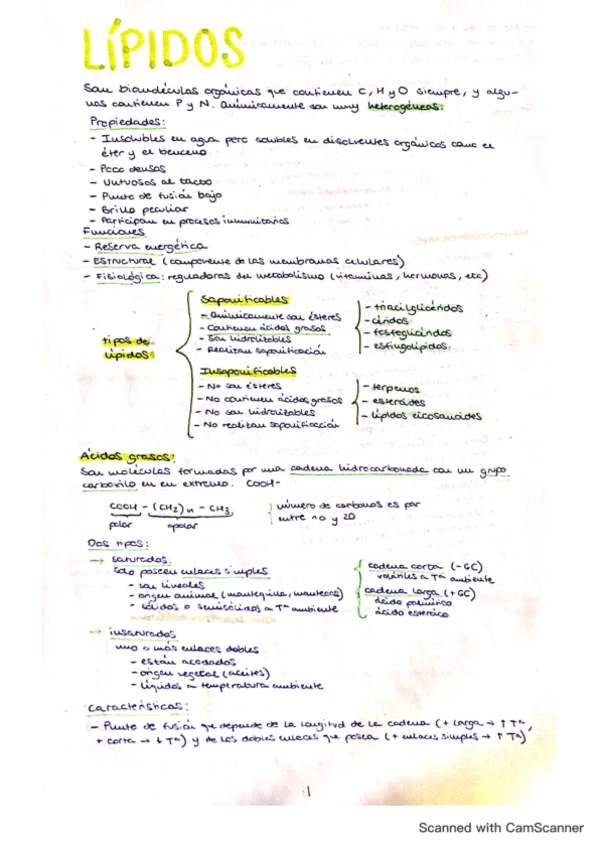 LÍPIDOS
Son biomoléculas orgánicas que contienen C, H y O siempre, y algu-
nas contienen P y N. Químicamente son muy heterogéneas.
Propiedades:
- Insolubles en agua pero solubles en disolventes orgánicos como el
éter y el benceno
- Poco densos
- Untuosos al tacto
- Punto de fusión bajo
- Brillo peculiar
- Participan en procesos inmunitarios
Funciones
- Reserva energética
- Estructural (componente de las membranas celulares)
- Fisiológica: reguladores del metabolismo (vitaminas, hormonas, etc)
tipos de
lípidos
Saponificables
- Químicamente son ésteres
- Contienen ácidos grasos
- Son hidrolizables
- Realizan saponificación
- triacilglicéridos
- céridos
- fosfoglicéridos
- esfingolípidos
Insaponificables
- No son ésteres
- No contienen ácidos grasos
- No son hidrolizables
- No realizan saponificación
- terpenos
- esteroides
- lípidos eicosanoides
Ácidos grasos:
Son moléculas formadas por una cadena hidrocarbonada con un grupo
carboxilo en un extremo. COOH-
COOH - (CH2)n - CH3
polar apolar
número de carbonos es par
entre 10 y 20
Dos tipos:
→ saturados:
solo poseen enlaces simples
- son lineales
- origen animal (mantequilla, mantecas)
- sólidos o semisólidos a Tª ambiente
cadena corta (-6C)
volátiles a Tª ambiente
cadena larga (+6C)
ácido palmítico
ácido esteárico
→ insaturados
uno o más enlaces dobles
- están acodados
- origen vegetal (aceites)
- líquidos a temperatura ambiente
Características:
- Punto de fusión que depende de la longitud de la cadena (+ larga → ↑ Tª,
+ corta → ↓ Tª) y de los dobles enlaces que posea (+ enlaces simples → ↑ Tª)
1
Scanned with CamScanner